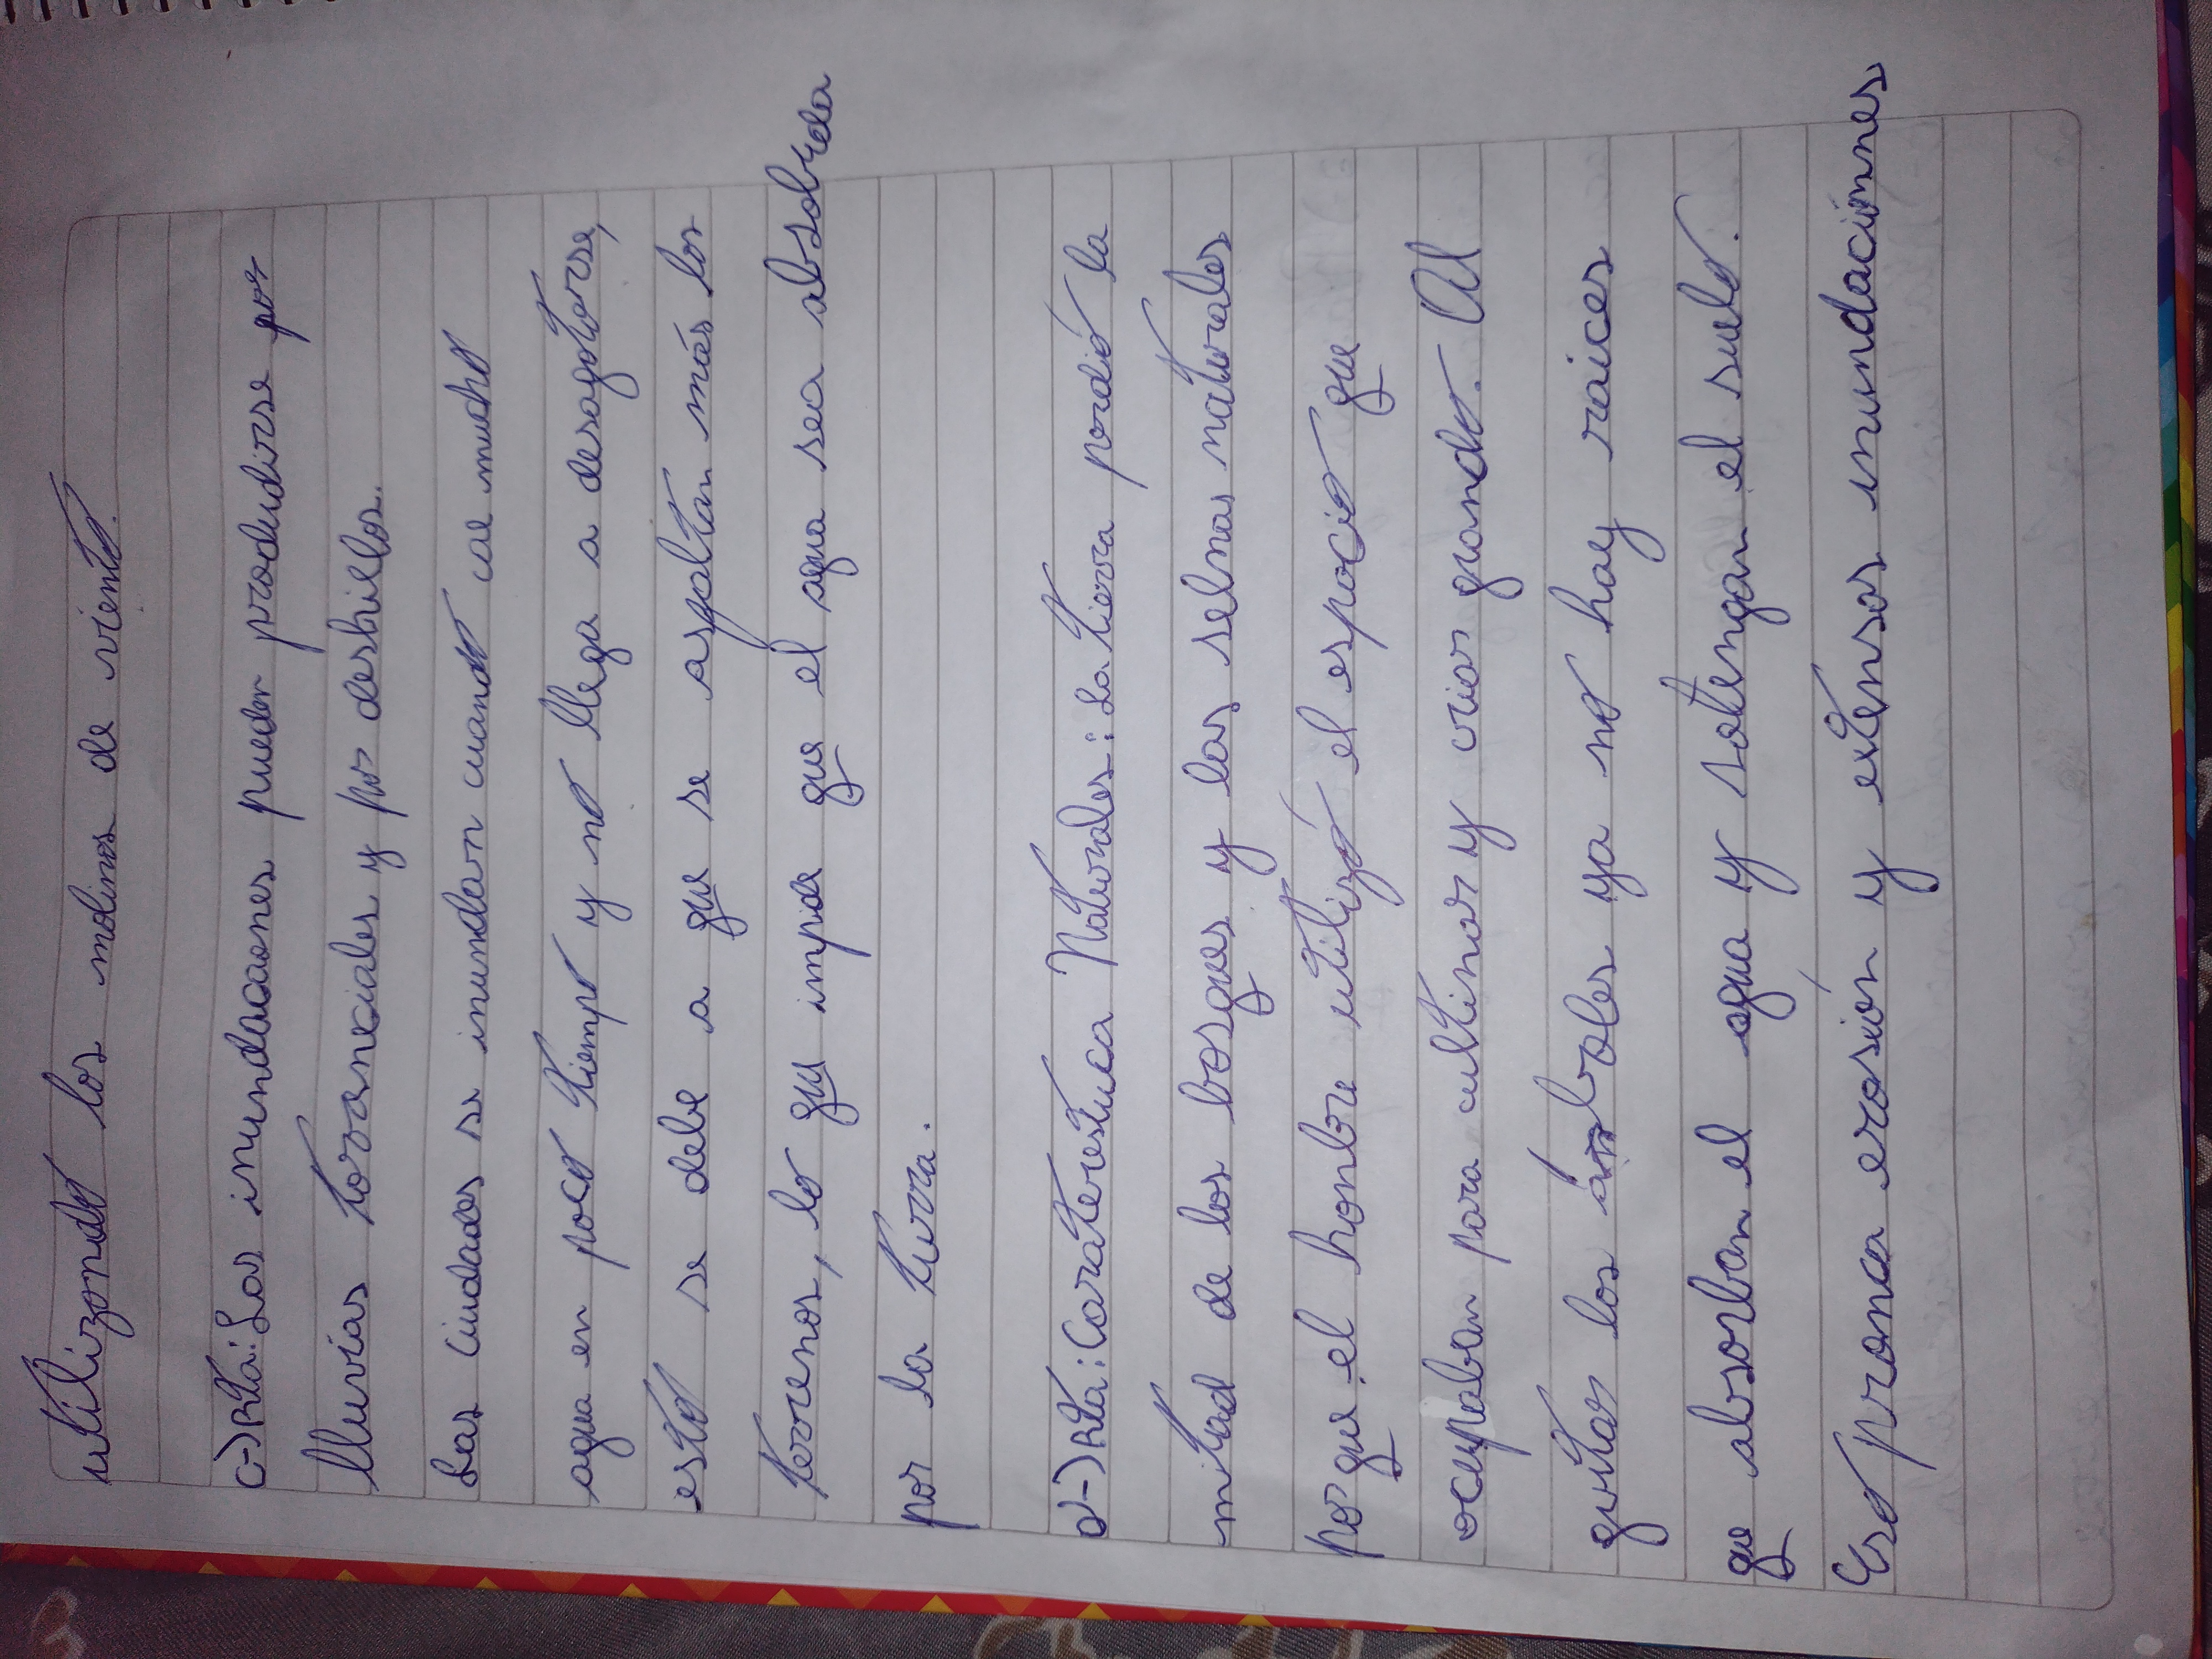 utilizando los molinos de viento.
C-) Rta: Las inundaciones pueden produdirse por
lluvias torrenciales y por deshielos.
Las ciudades se inundan cuando cae mucho
agua en poco tiempo y no llega a desagotarse,
esto se debe a que se asfaltan más los
terrenos, lo que impide que el agua sea absorbida
por la tierra.
D-) Rta: Carateristica Naturales: La tierra perdió la
mitad de los bosques y las selvas naturales
por que el hombre utilizó el espacio que
ocupaban para cultivar y criar ganado. Al
quitar los árboles ya no hay raices
que absorban el agua y sotengan el suelo.
Eso provoca erosión y extensas inundaciónes